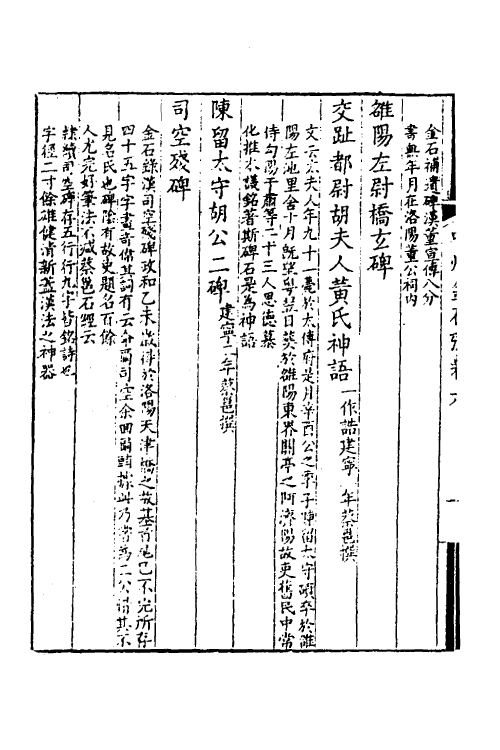 金石補遺碑漢董宣傳八分
書無年月在洛陽董公祠內
雒陽左尉橋玄碑
交趾都尉胡夫人黃氏神誥一作誥建寧 年蔡邕撰
文云太夫人年九十一薨於太傅府是月辛酉公之季子陳留太守碩卒於雒
陽左池里舍十月既望粵翌日葬於雒陽東界關亭之阿濟陽故吏舊民中常
侍句陽于肅等二十三人思德慕
化推本議銘著斯碑石是為神誥
陳留太守胡公二碑建寧二年蔡邕撰
司空殘碑
金石錄漢司空殘碑政和乙未歲得於洛陽天津橋之故基首尾已不完所存
四十五字字畫奇偉其詞有云命爾司空余回爾輔據此乃嘗為三公惜其不
見名氏也碑陰有故吏題名百餘
人尤完好筆法不減蔡邕石經云
隸續司空碑存五行行九字皆銘詩也
字徑二寸餘雄健清新蓋漢法之神器